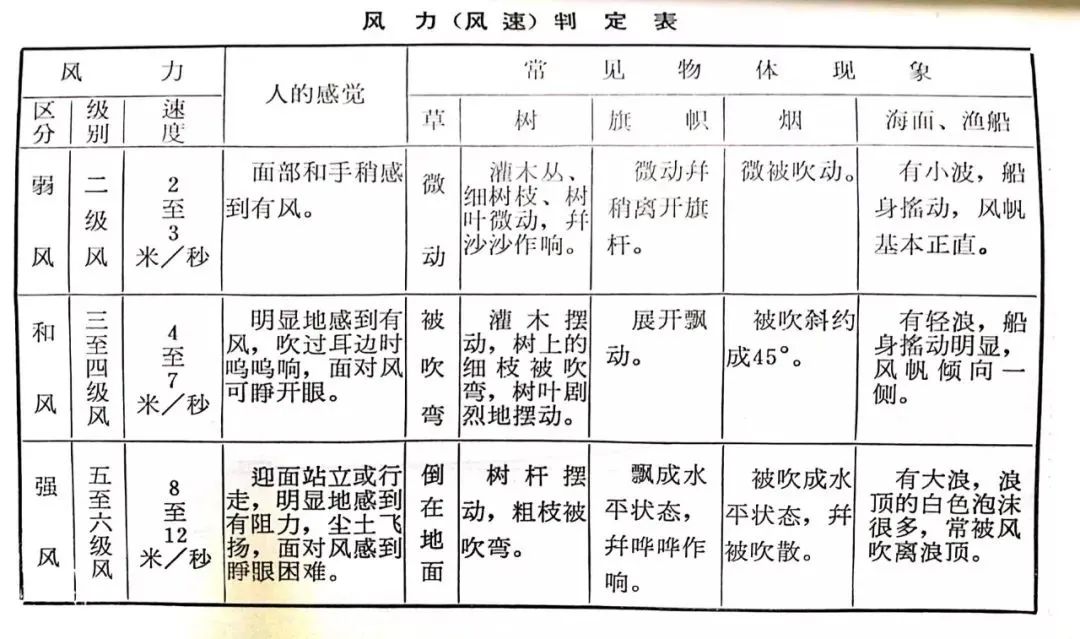 风力(风速)判定表
风力
人的感觉
常见物体现象
区分
级别
速度
草
树
旗帜
烟
海面、渔船
弱风
二级风
2
至
3
米/秒
面部和手稍感
到有风。
微动
灌木丛、
细树枝、树
叶微动，幷
沙沙作响。
微动幷
稍离开旗
杆。
微被吹动。
有小波，船
身搖动，风帆
基本正直。
和风
三至四级风
4
至
7
米/秒
明显地感到有
风，吹过耳边时
呜呜响，面对风
可睁开眼。
被吹弯
灌木摆
动，树上的
细枝被吹
弯，树叶剧
烈地摆动。
展开飘
动。
被吹斜约
成45°。
有轻浪，船
身搖动明显，
风帆倾向一
侧。
强风
五至六级风
8
至
12
米/秒
迎面站立或行
走，明显地感到
有阻力，尘土飞
扬，面对风感到
睁眼困难。
倒在地面
树杆摆
动，粗枝被
吹弯。
飘成水
平状态，
幷哗哗作
响。
被吹成水
平状态，幷
被吹散。
有大浪，浪
顶的白色泡沫
很多，常被风
吹离浪顶。